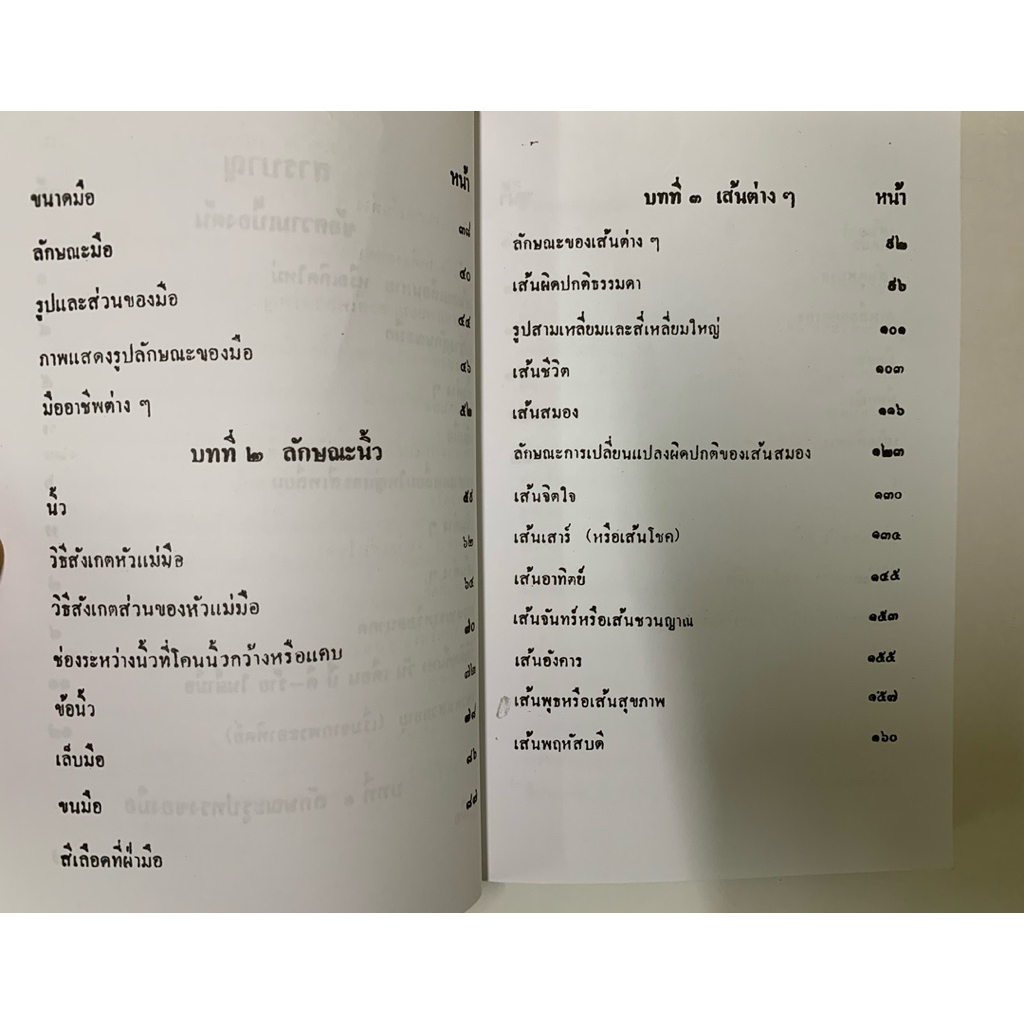 หน้า
ขนาดมือ ๓๘
ลักษณะมือ ๔๐
รูปและส่วนของมือ ๔๔
ภาพแสดงรูปลักษณะของมือ ๔๖
มืออาชีพต่าง ๆ ๕๒
บทที่ ๒ ลักษณะนิ้ว
นิ้ว ๕๙
วิธีสังเกตหัวแม่มือ ๖๒
วิธีสังเกตส่วนของหัวแม่มือ ๖๔
ช่องระหว่างนิ้วที่โคนนิ้วกว้างหรือแคบ ๗๐
ข้อนิ้ว ๗๒
เล็บมือ ๗๘
ขนมือ ๘๖
สีเลือดที่ฝ่ามือ ๘๗
บทที่ ๓ เส้นต่าง ๆ หน้า
ลักษณะของเส้นต่าง ๆ ๙๒
เส้นผิดปกติธรรมดา ๙๖
รูปสามเหลี่ยมและสี่เหลี่ยมใหญ่ ๑๐๑
เส้นชีวิต ๑๐๓
เส้นสมอง ๑๑๖
ลักษณะการเปลี่ยนแปลงผิดปกติของเส้นสมอง ๑๒๓
เส้นจิตใจ ๑๓๐
เส้นเสาร์ (หรือเส้นโชค)
เส้นอาทิตย์ ๑๔๕
เส้นจันทร์หรือเส้นชวนญาณ ๑๕๓
เส้นอังคาร ๑๕๕
เส้นพุธหรือเส้นสุขภาพ ๑๕๗
เส้นพฤหัสบดี ๑๖๐